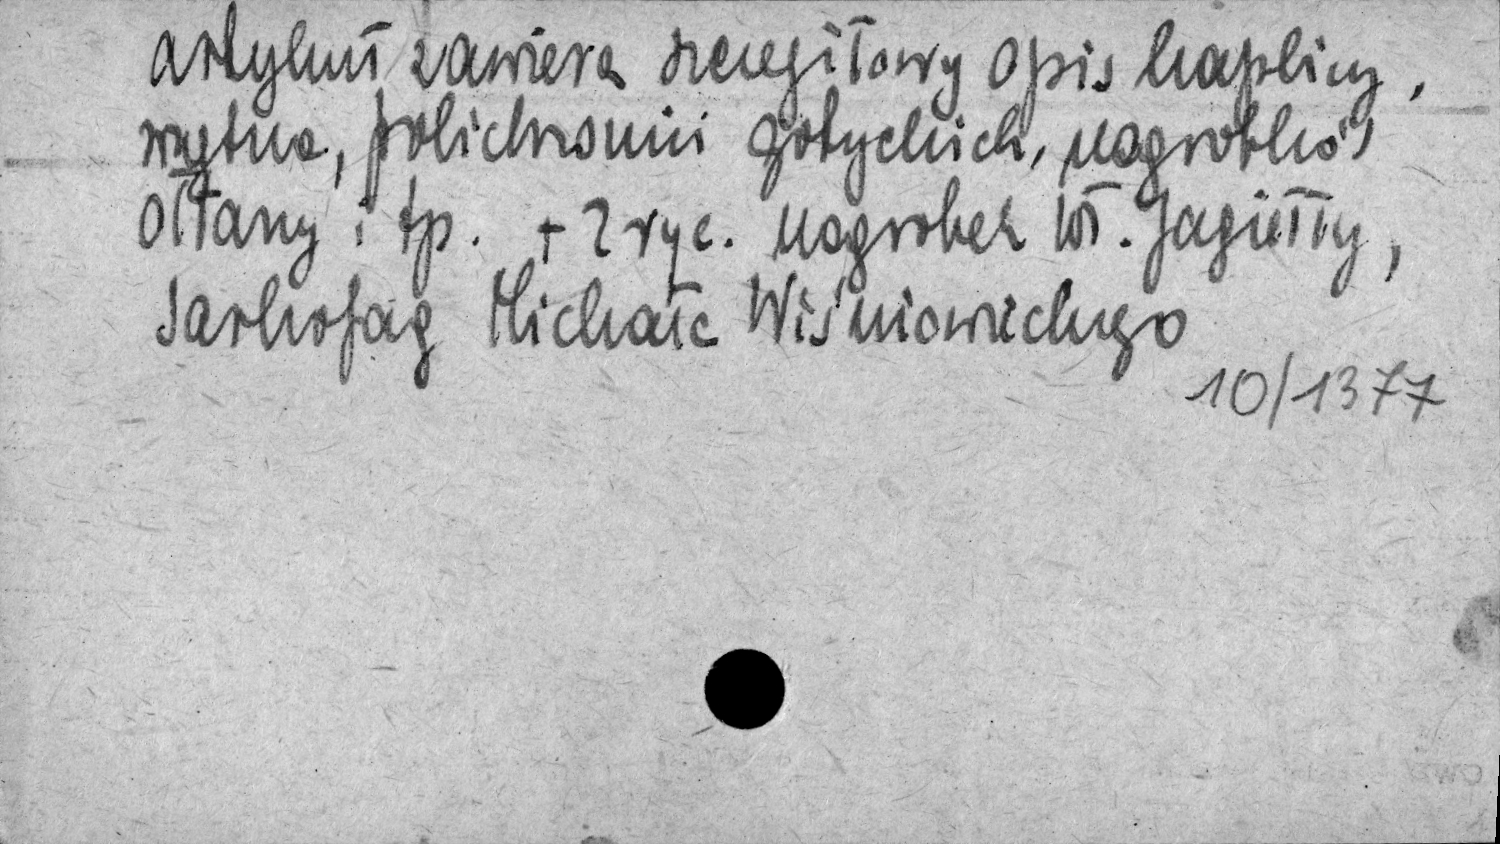 artykuł zawiera szczegółowy opis kaplicy,
wnętrza, polichromii gotyckich, nagrobków
ołtarzy itp. + 2 ryc. nagrobek Wł. Jagiełły,
sarkofag Michała Wiśniowieckiego
10/1377